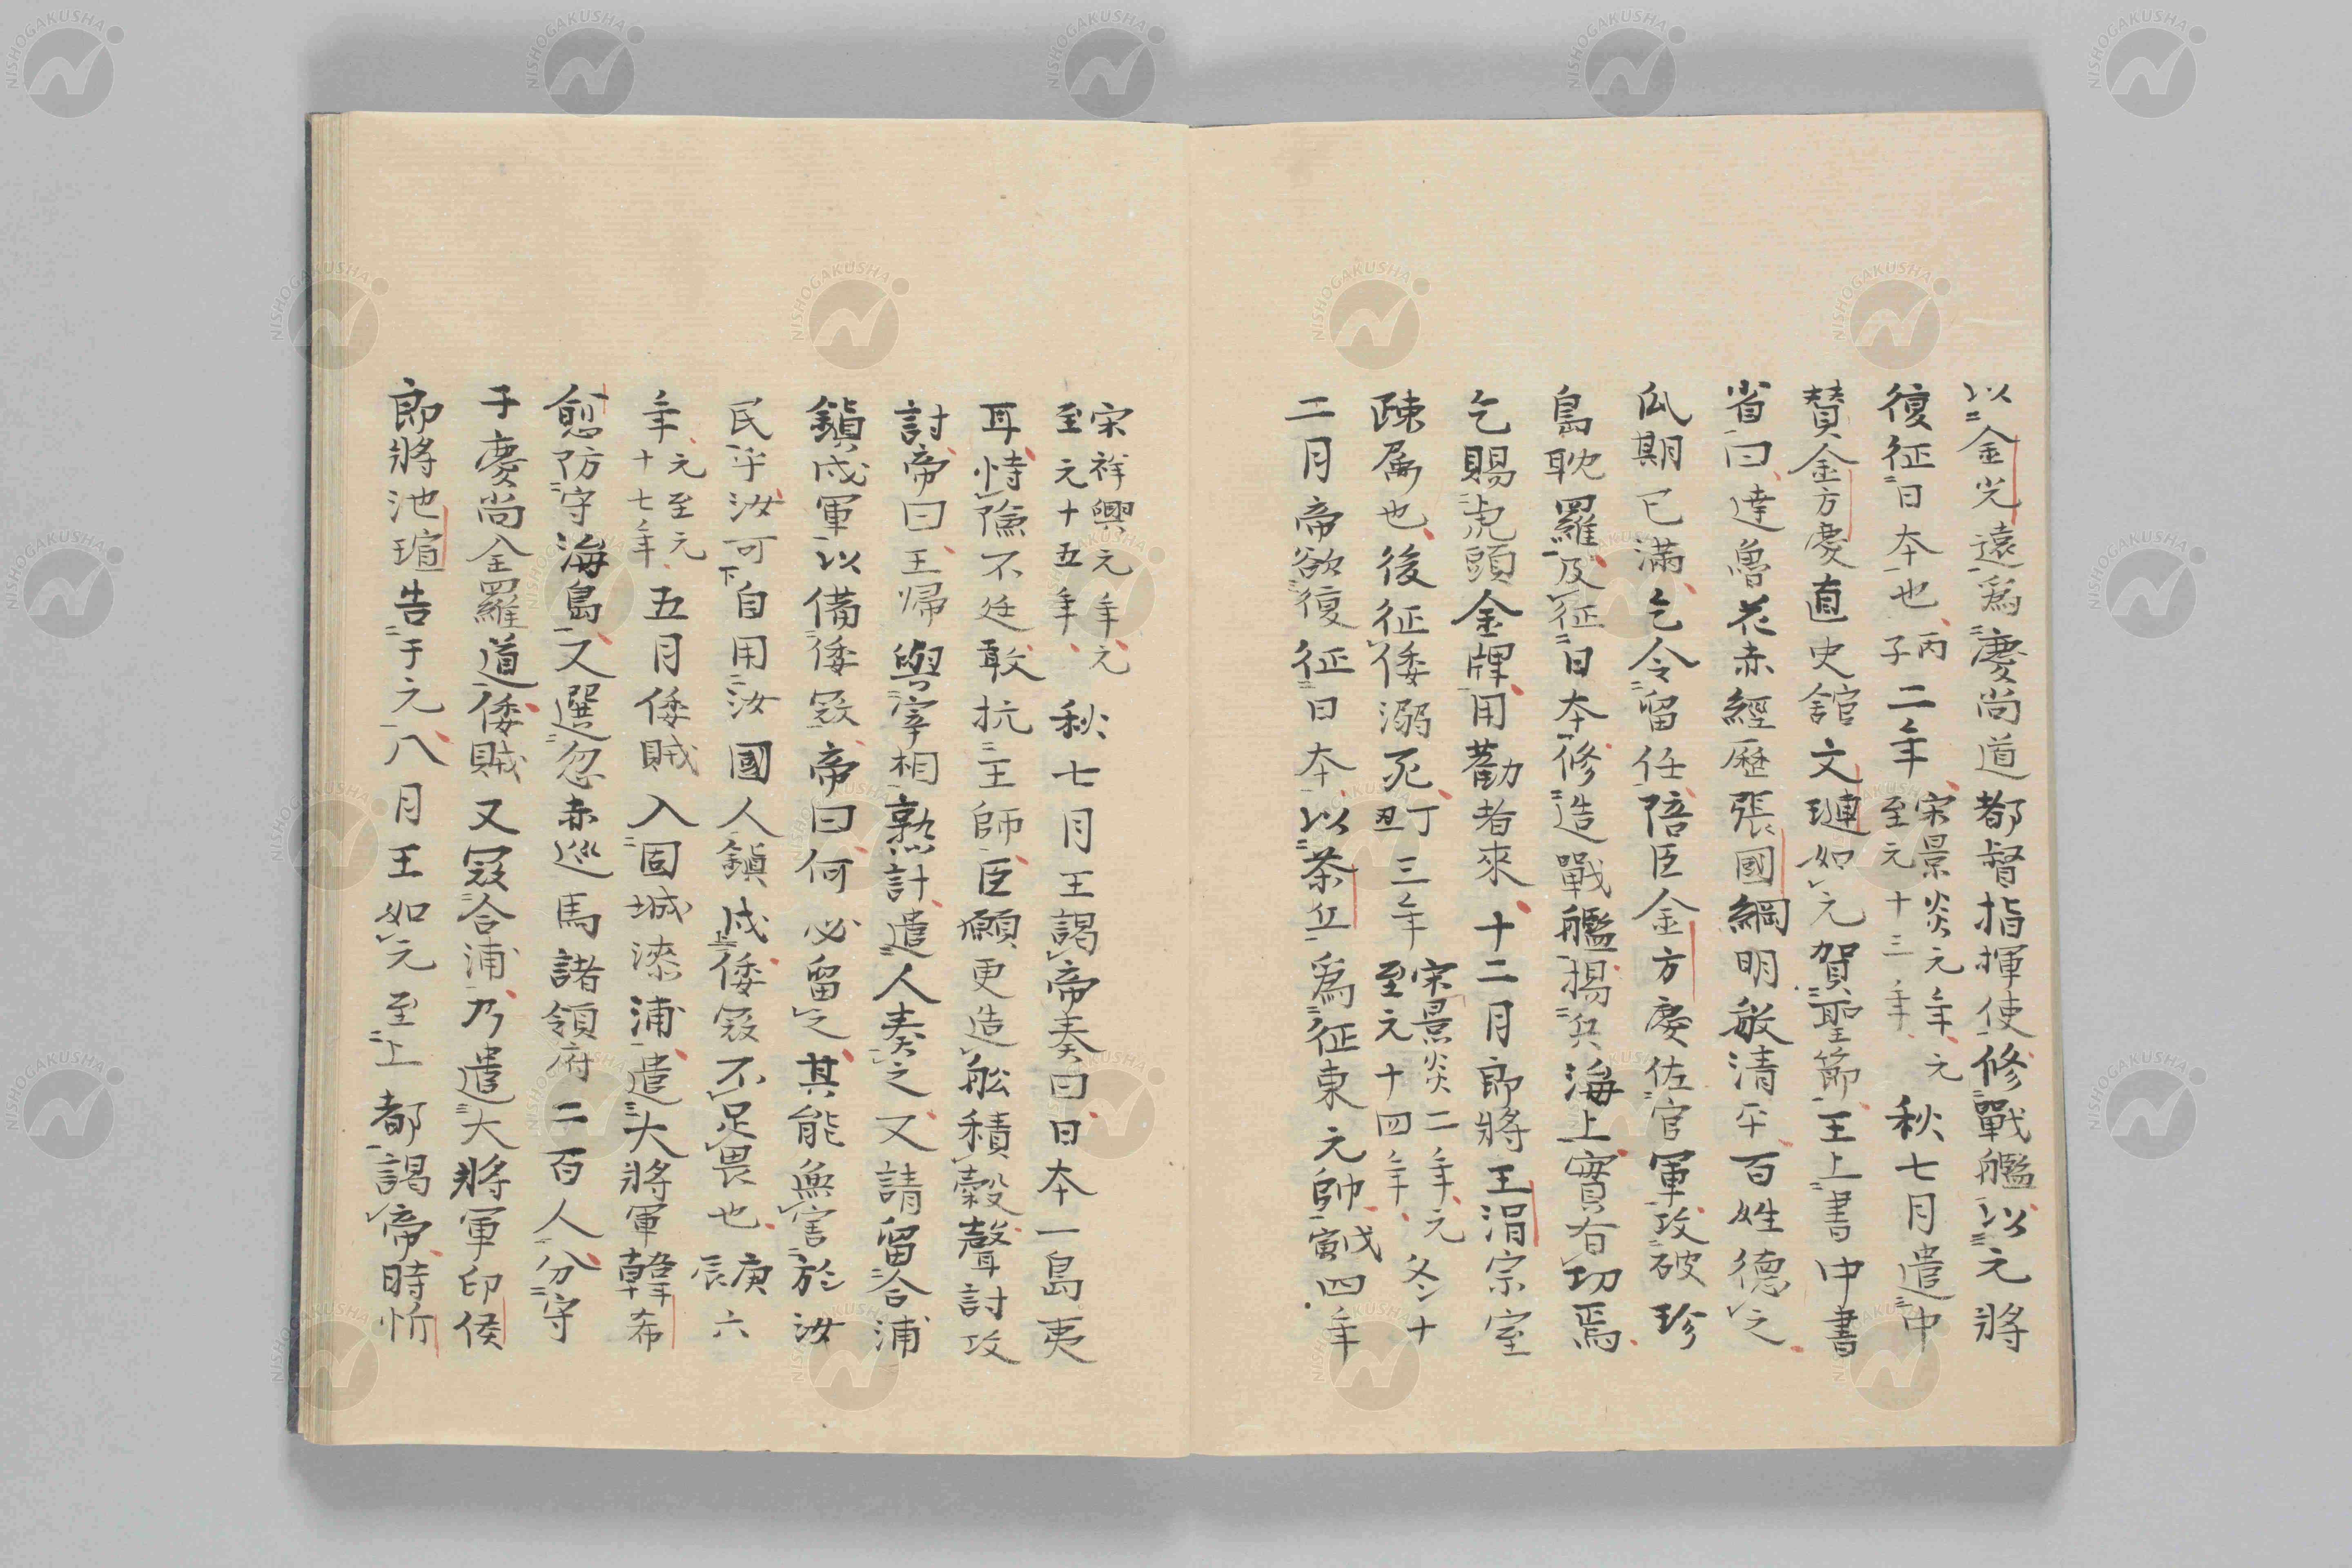 以金光遠爲慶尚道都督指揮使修戰艦以元將
復征日本也丙子二年宋景炎元年元至元十三年秋七月遣中
賛金方慶直史館文璉如元賀聖節王上書中書
省曰達魯花赤經歴張國綱明敏清平百姓德之
瓜期已滿乞令留任陪臣金方慶佐官軍攻破珍
島耽羅及征日本修造戰艦揚兵海上實有功焉
乞賜虎頭金牌用勸者來十二月郎將王涓宗室
疎属也後征倭溺死丁丑三年宋景炎二年元至元十四年冬十
二月帝欲復征日本以茶丘爲征東元帥戊寅四年
宋祥興元年元至元十五年秋七月王謁帝奏曰日本一島夷
耳恃險不廷敢抗王師臣願更造舩積穀聲討攻
討帝曰王歸與宰相熟計遣人奏之又請留合浦
鎭戍軍以備倭冦帝曰何必留之其能無害於汝
民乎汝可自用汝國人鎭戍倭冦不足畏也庚辰六
年元至元十七年五月倭賊入固城漆浦遣大將軍韓希
愈防守海島又選忽赤巡馬諸領府二百人分守
于慶尚全羅道倭賊又冦合浦乃遣大將軍印侯
郎將池瑄告于元八月王如元至上都謁帝時忻
NISHOGAKUSHA